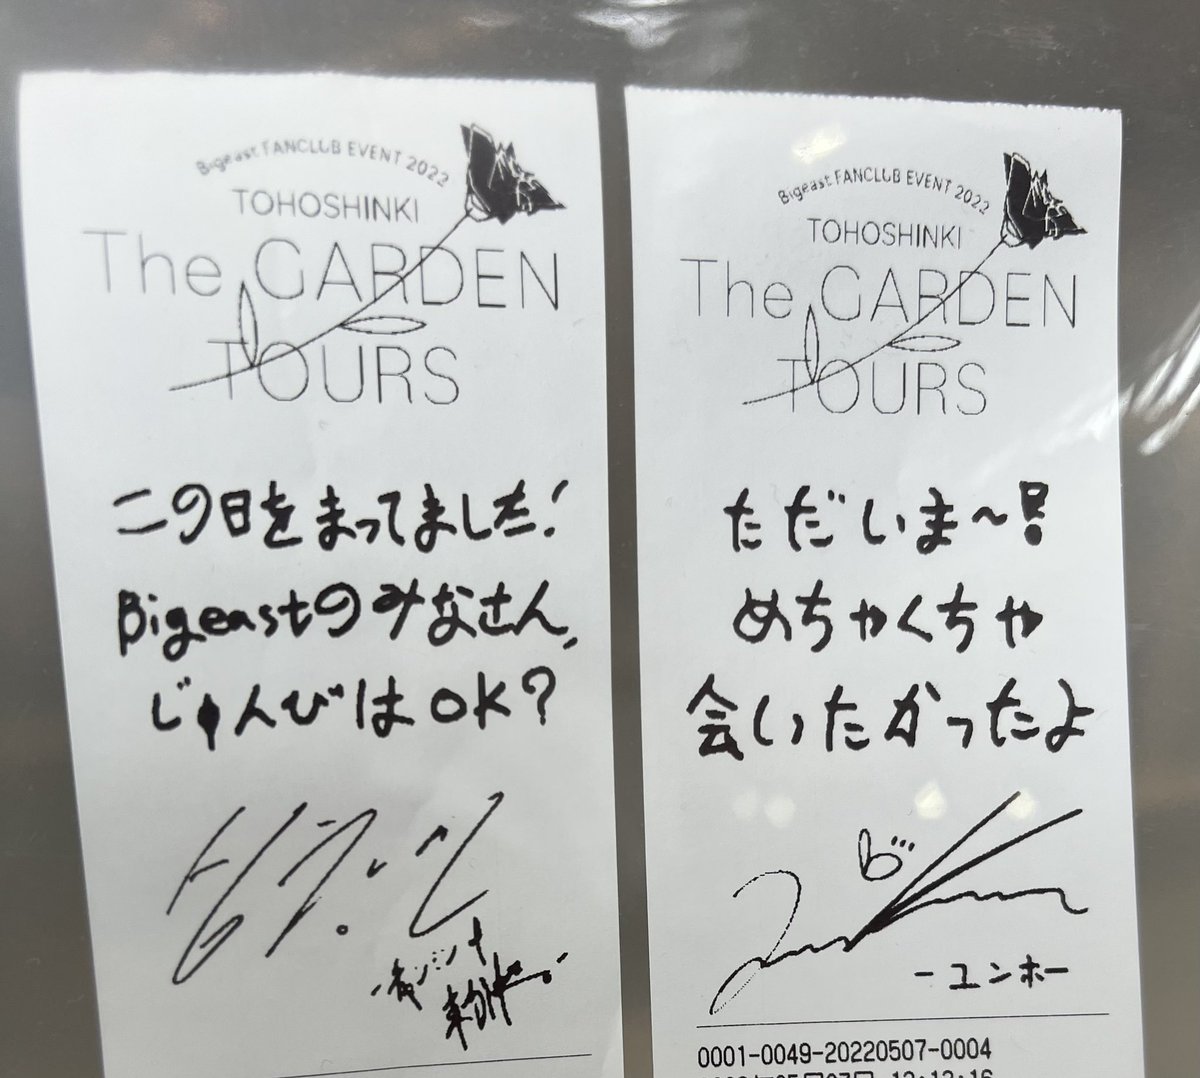 Bigeast FANCLUB EVENT 2022
TOHOSHINKI
The GARDEN
TOURS
この日をまってました!
Bigeastのみなさん、
じゅんびはOK?
Bigeast FANCLUB EVENT 2022
TOHOSHINKI
The GARDEN
TOURS
ただいま〜!
めちゃくちゃ
会いたかったよ
-ユンホ-
0001-0049-20220507-0004